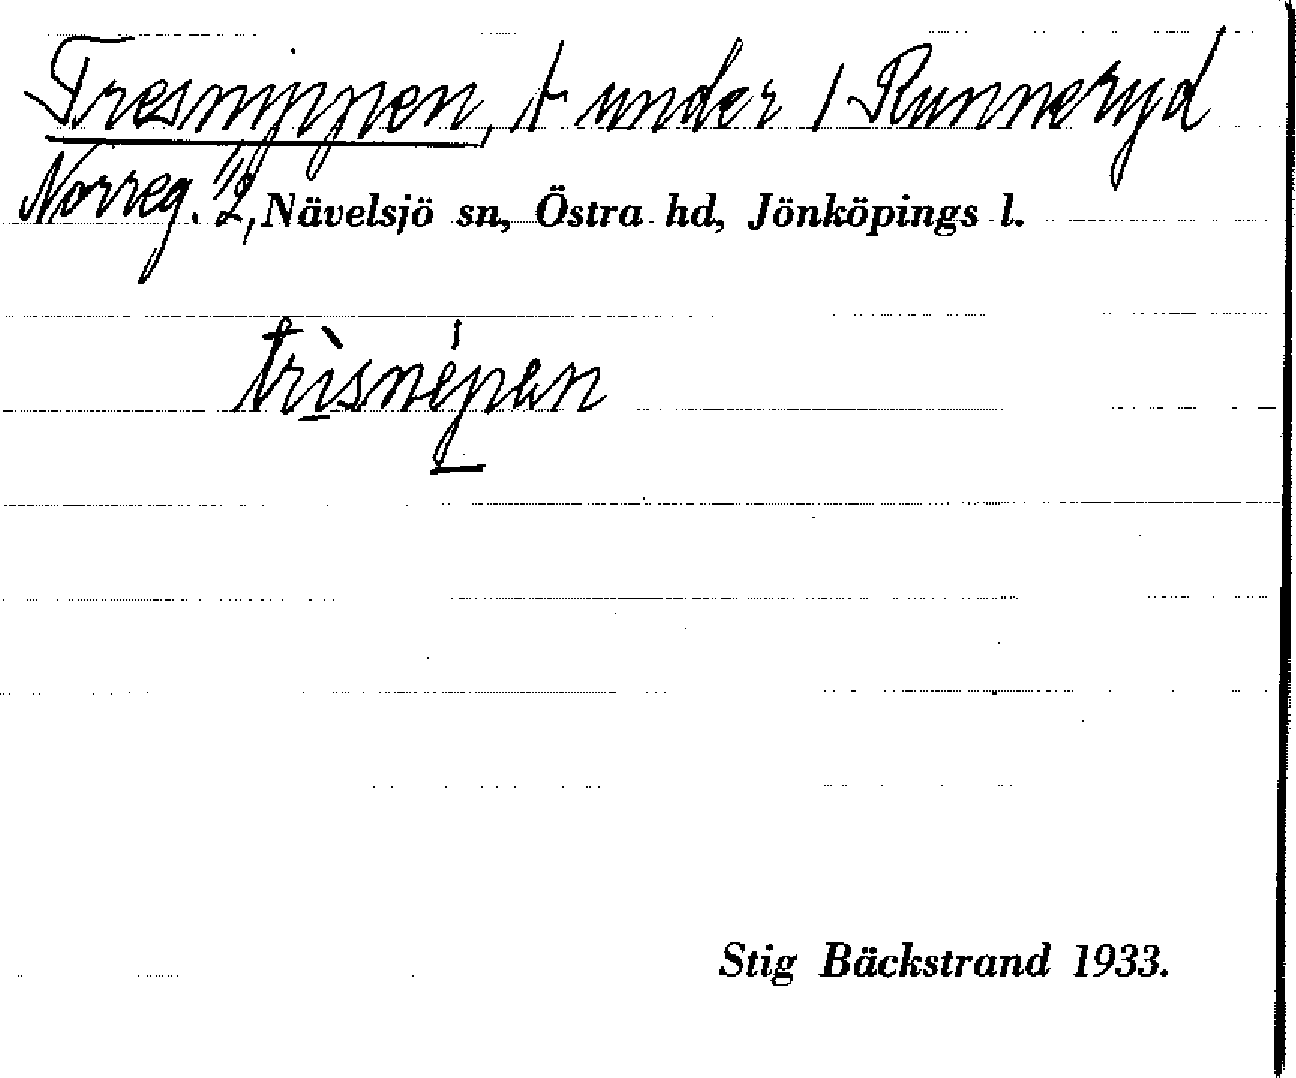 Tresnippen, t under 1 Runneryd
Norreg. 1/2, Nävelsjö sn, Östra hd, Jönköpings l.
trìsnépen
Stig Bäckstrand 1933.